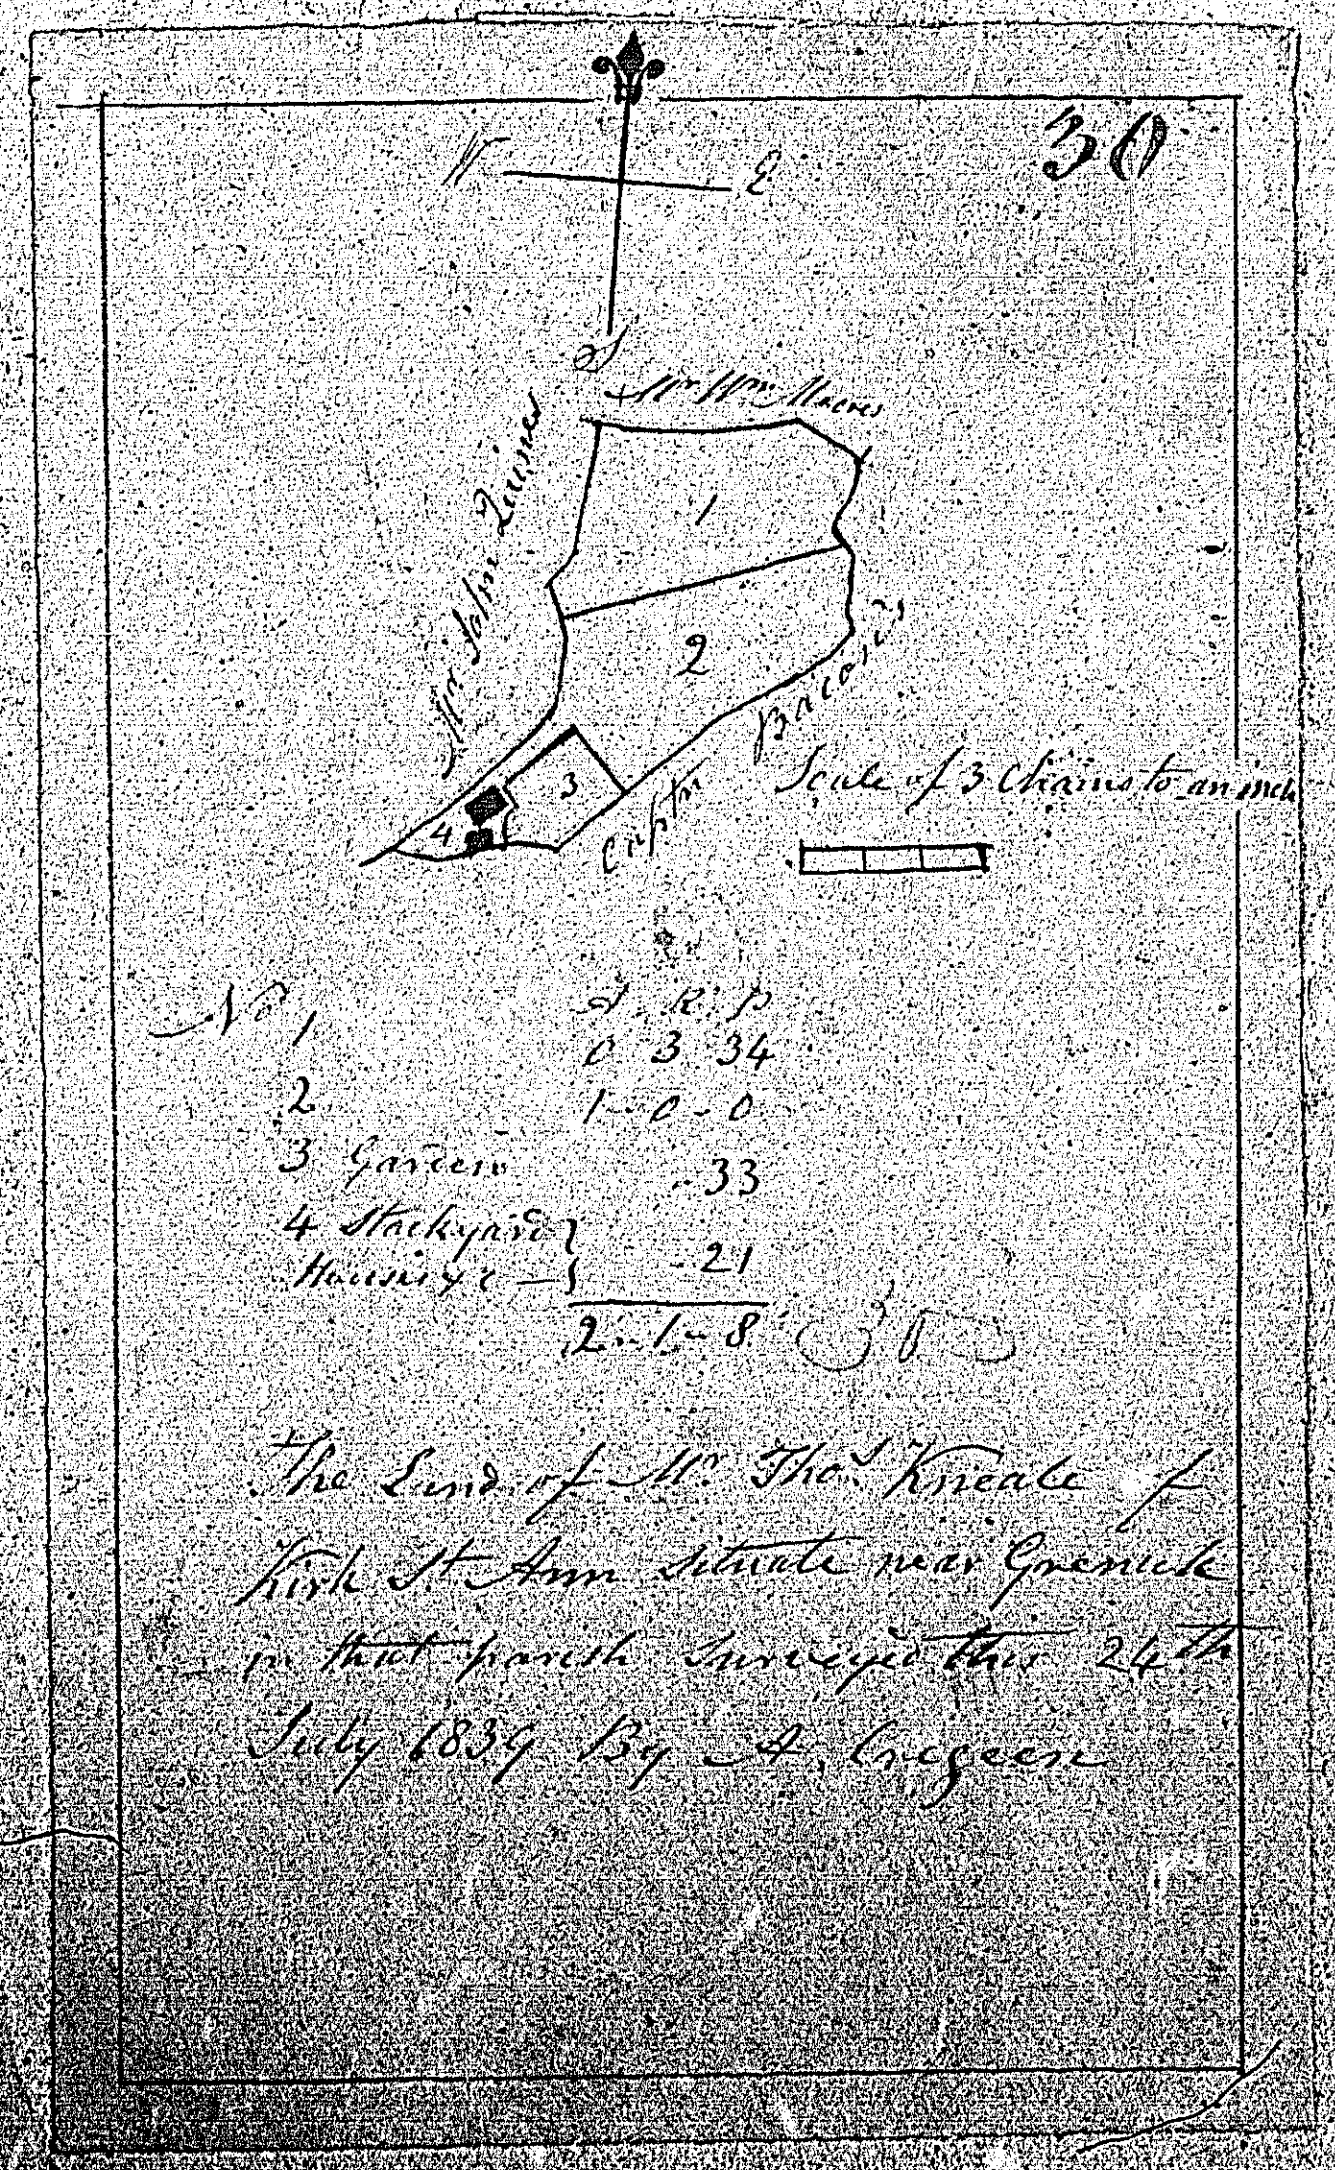 30
W E
S
Mr Wm Moores
Mr John Quines
1
2
3
4
Captn Bacon's
Scale of 3 Chains to an inch
No A. R. P
1 0 3 34
2 1 - 0 - 0
3 Garden - 33
4 Stackyard }
Houses &c - } - 21
2 - 1 - 8
The Land of Mr Thos Kneale of
Kirk St. Ann situate near Grenick
in that parish Surveyed this 24th
July 1839 By A. Cregeen